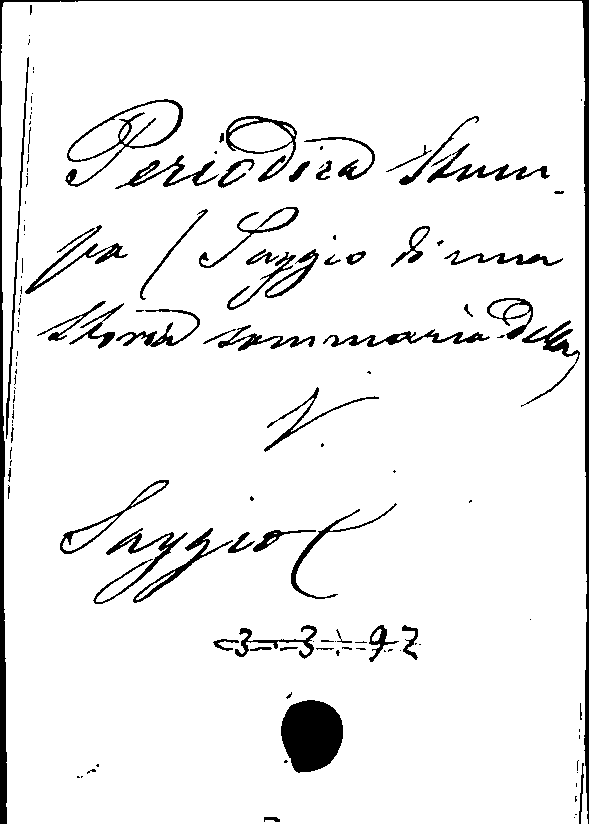 Periodica Stam-
pa (Saggio di una
Storia sommaria della)
V.
Saggio (
3-3-92